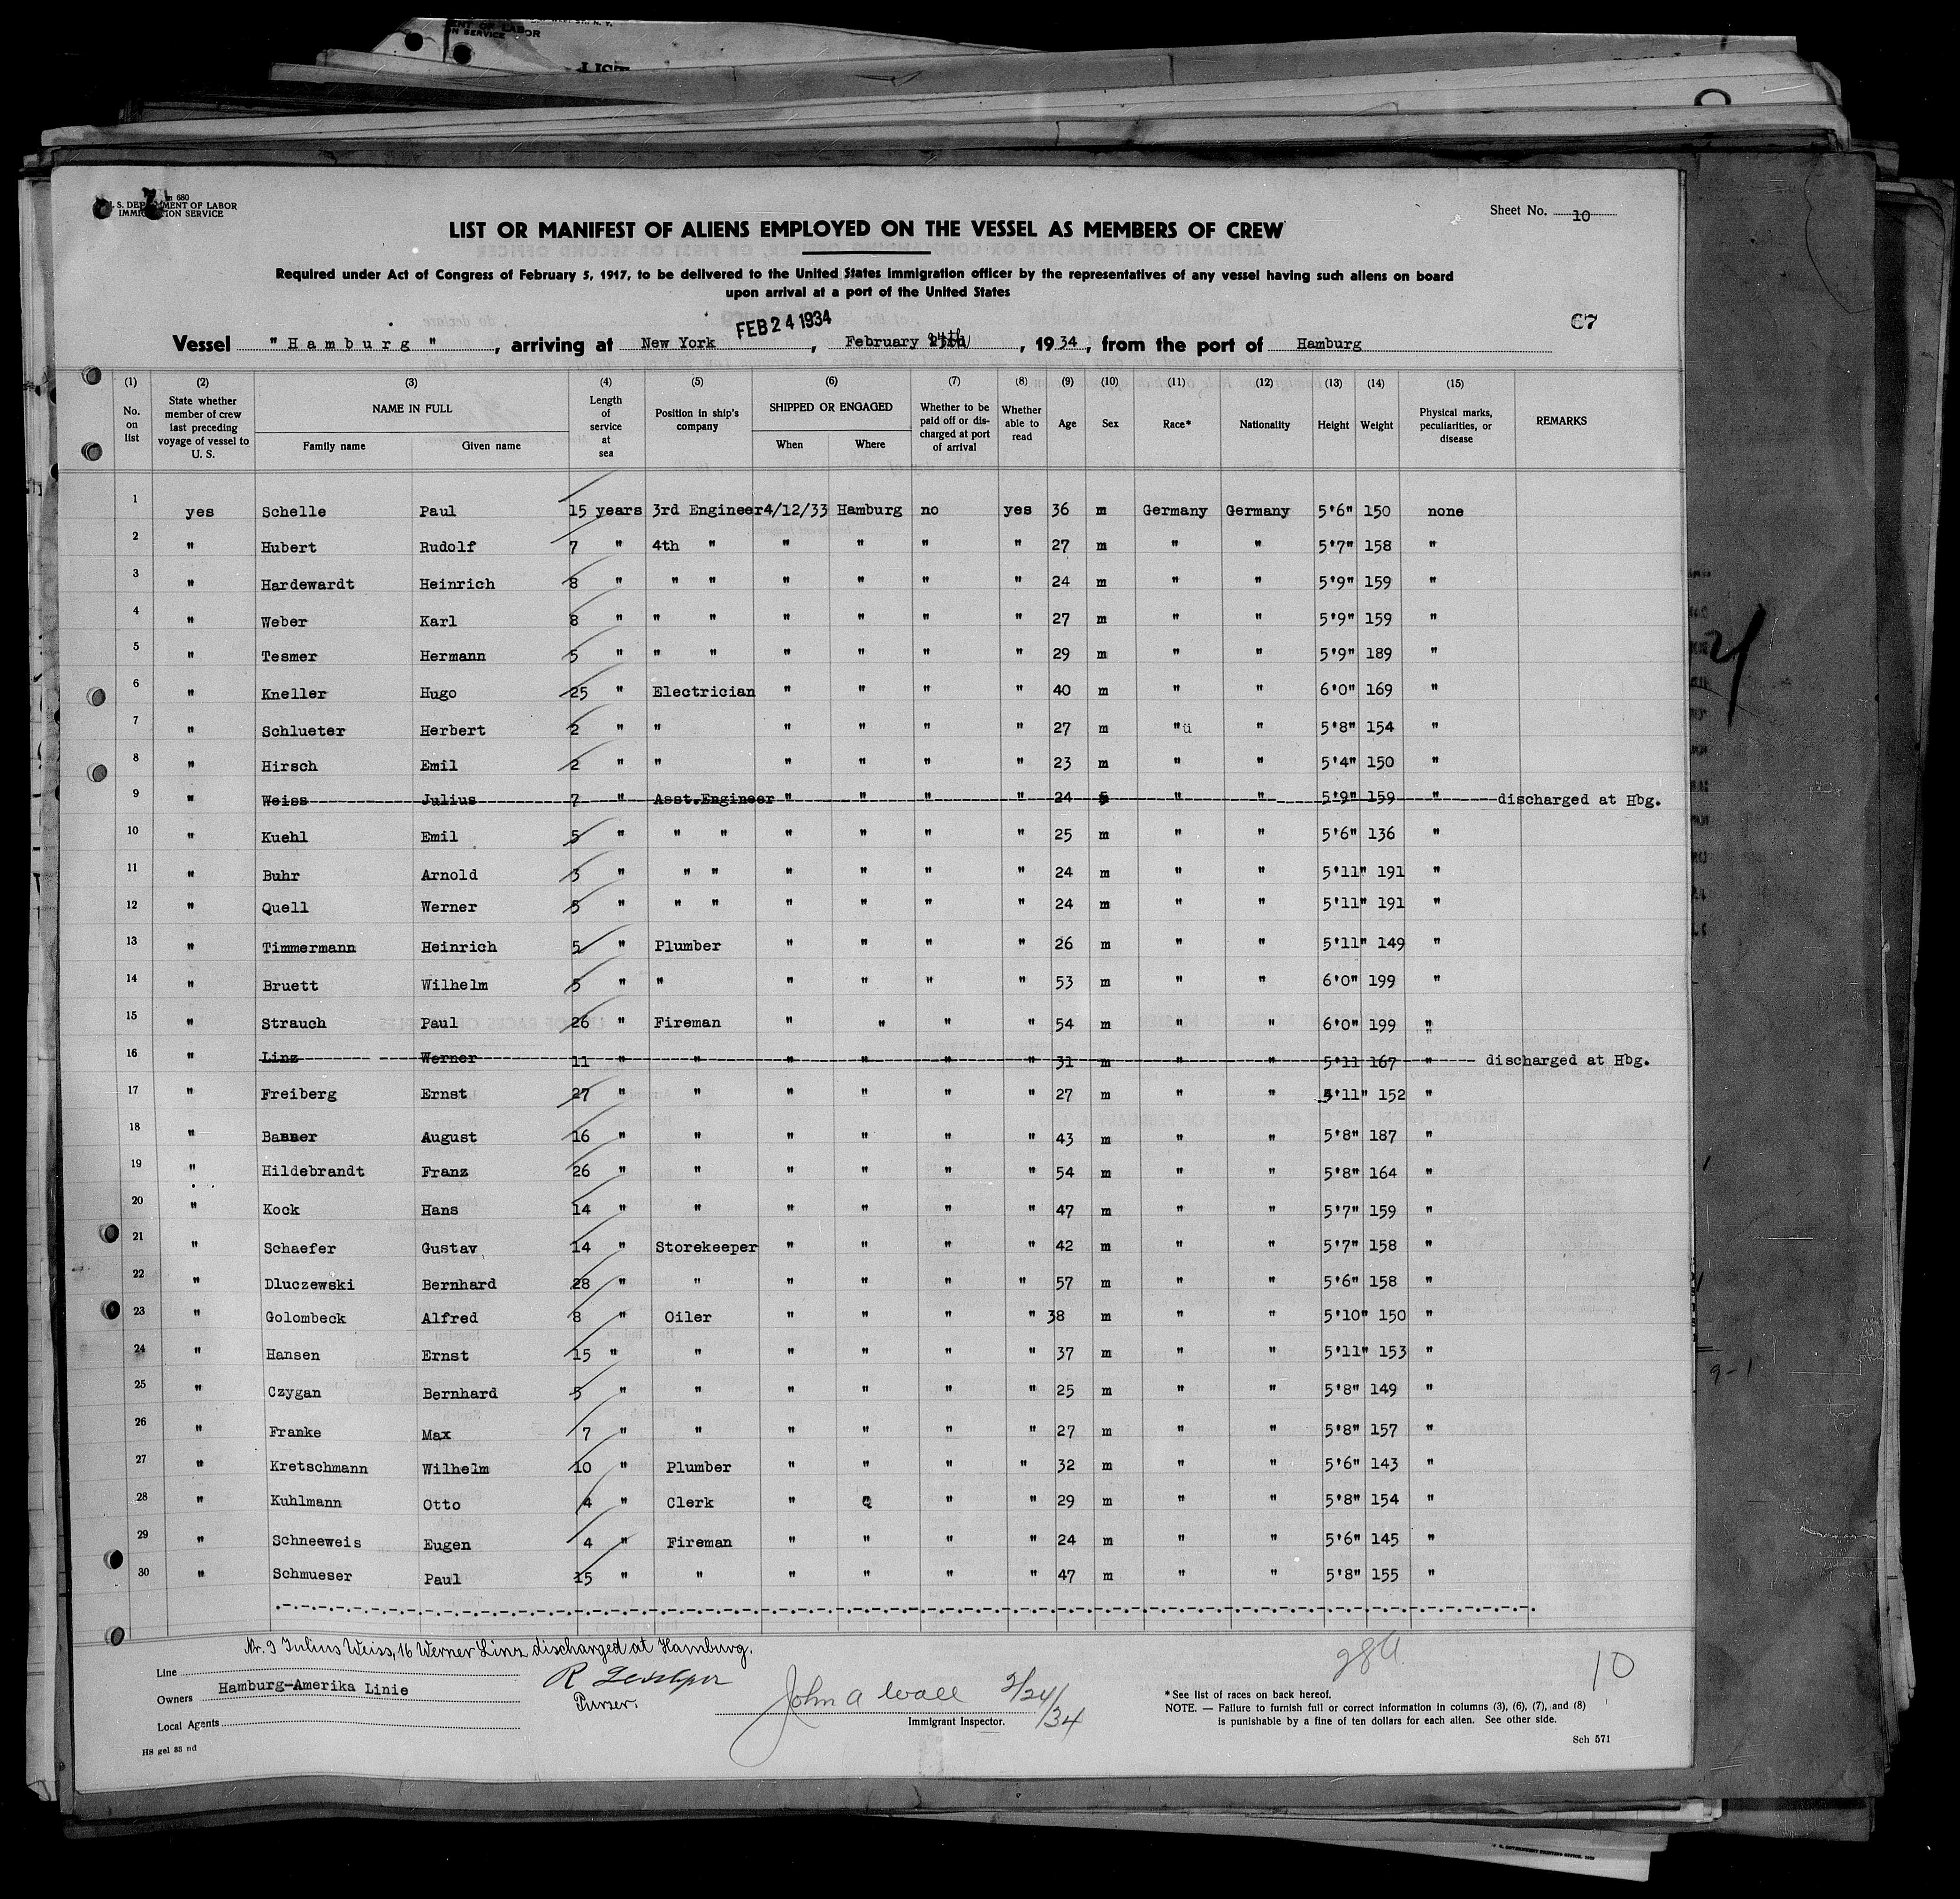 Sheet No. 10
U. S. DEPARTMENT OF LABOR
IMMIGRATION SERVICE
LIST OR MANIFEST OF ALIENS EMPLOYED ON THE VESSEL AS MEMBERS OF CREW
Required under Act of Congress of February 5, 1917, to be delivered to the United States immigration officer by the representatives of any vessel having such aliens on board
upon arrival at a port of the United States
67
FEB 24 1934
Vessel "Hamburg", arriving at New York, February 24th, 1934, from the port of Hamburg
(1) (2) (3) (4) (5) (6) (7) (8) (9) (10) (11) (12) (13) (14) (15)
No. on list State whether member of crew last preceding voyage of vessel to U. S. NAME IN FULL Family name Given name Length of service at sea Position in ship's company SHIPPED OR ENGAGED When Where Whether to be paid off or discharged at port of arrival Whether able to read Age Sex Race* Nationality Height Weight Physical marks, peculiarities, or disease REMARKS
1 yes Schelle Paul 15 years 3rd Engineer 4/12/33 Hamburg no yes 36 m Germany Germany 5'6" 150 none
2 " Hubert Rudolf 7 " 4th " " " " " 27 m " " 5'7" 158 "
3 " Hardewardt Heinrich 8 " " " " " " " 24 m " " 5'9" 159 "
4 " Weber Karl 8 " " " " " " " 27 m " " 5'9" 159 "
5 " Tesmer Hermann 5 " " " " " " " 29 m " " 5'9" 189 "
6 " Kneller Hugo 25 " Electrician " " " " 40 m " " 6'0" 169 "
7 " Schlueter Herbert 2 " " " " " " 27 m " " 5'8" 154 "
8 " Hirsch Emil 2 " " " " " " 23 m " " 5'4" 150 "
9 " Weiss Julius 7 " Asst.Engineer " " " " 24 " " 5'9" 159 " discharged at Hbg.
10 " Kuehl Emil 5 " " " " " " " 25 m " " 5'6" 136 "
11 " Buhr Arnold 3 " " " " " " " 24 m " " 5'11" 191 "
12 " Quell Werner 5 " " " " " " " 24 m " " 5'11" 191 "
13 " Timmermann Heinrich 5 " Plumber " " " " 26 m " " 5'11" 149 "
14 " Bruett Wilhelm 5 " " " " " " 53 m " " 6'0" 199 "
15 " Strauch Paul 26 " Fireman " " " " 54 m " " 6'0" 199 "
16 " Linz Werner 11 " " " " " " 31 m " " 5'11 167 " discharged at Hbg.
17 " Freiberg Ernst 27 " " " " " " 27 m " " 5'11" 152 "
18 " Banner August 16 " " " " " " 43 m " " 5'8" 187 "
19 " Hildebrandt Franz 26 " " " " " " 54 m " " 5'8" 164 "
20 " Kock Hans 14 " " " " " " 47 m " " 5'7" 159 "
21 " Schaefer Gustav 14 " Storekeeper " " " " 42 m " " 5'7" 158 "
22 " Dluczewski Bernhard 28 " " " " " " 57 m " " 5'6" 158 "
23 " Golombeck Alfred 8 " Oiler " " " " 38 m " " 5'10" 150 "
24 " Hansen Ernst 15 " " " " " " 37 m " " 5'11" 153 "
25 " Czygan Bernhard 5 " " " " " " 25 m " " 5'8" 149 "
26 " Franke Max 7 " " " " " " 27 m " " 5'8" 157 "
27 " Kretschmann Wilhelm 10 " Plumber " " " " 32 m " " 5'6" 143 "
28 " Kuhlmann Otto 4 " Clerk " " " " 29 m " " 5'8" 154 "
29 " Schneeweis Eugen 4 " Fireman " " " " 24 m " " 5'6" 145 "
30 " Schmueser Paul 15 " " " " " " 47 m " " 5'8" 155 "
Nr. 9 Julius Weiss, 16 Werner Linz discharged at Hamburg.
Line
Owners Hamburg-Amerika Linie
Local Agents
R
Purser.
John A Wall 2/24/34
Immigrant Inspector.
10
*See list of races on back hereof.
NOTE. — Failure to furnish full or correct information in columns (3), (6), (7), and (8)
is punishable by a fine of ten dollars for each alien. See other side.
H8 gel 83 nd
Sch 571
9-1